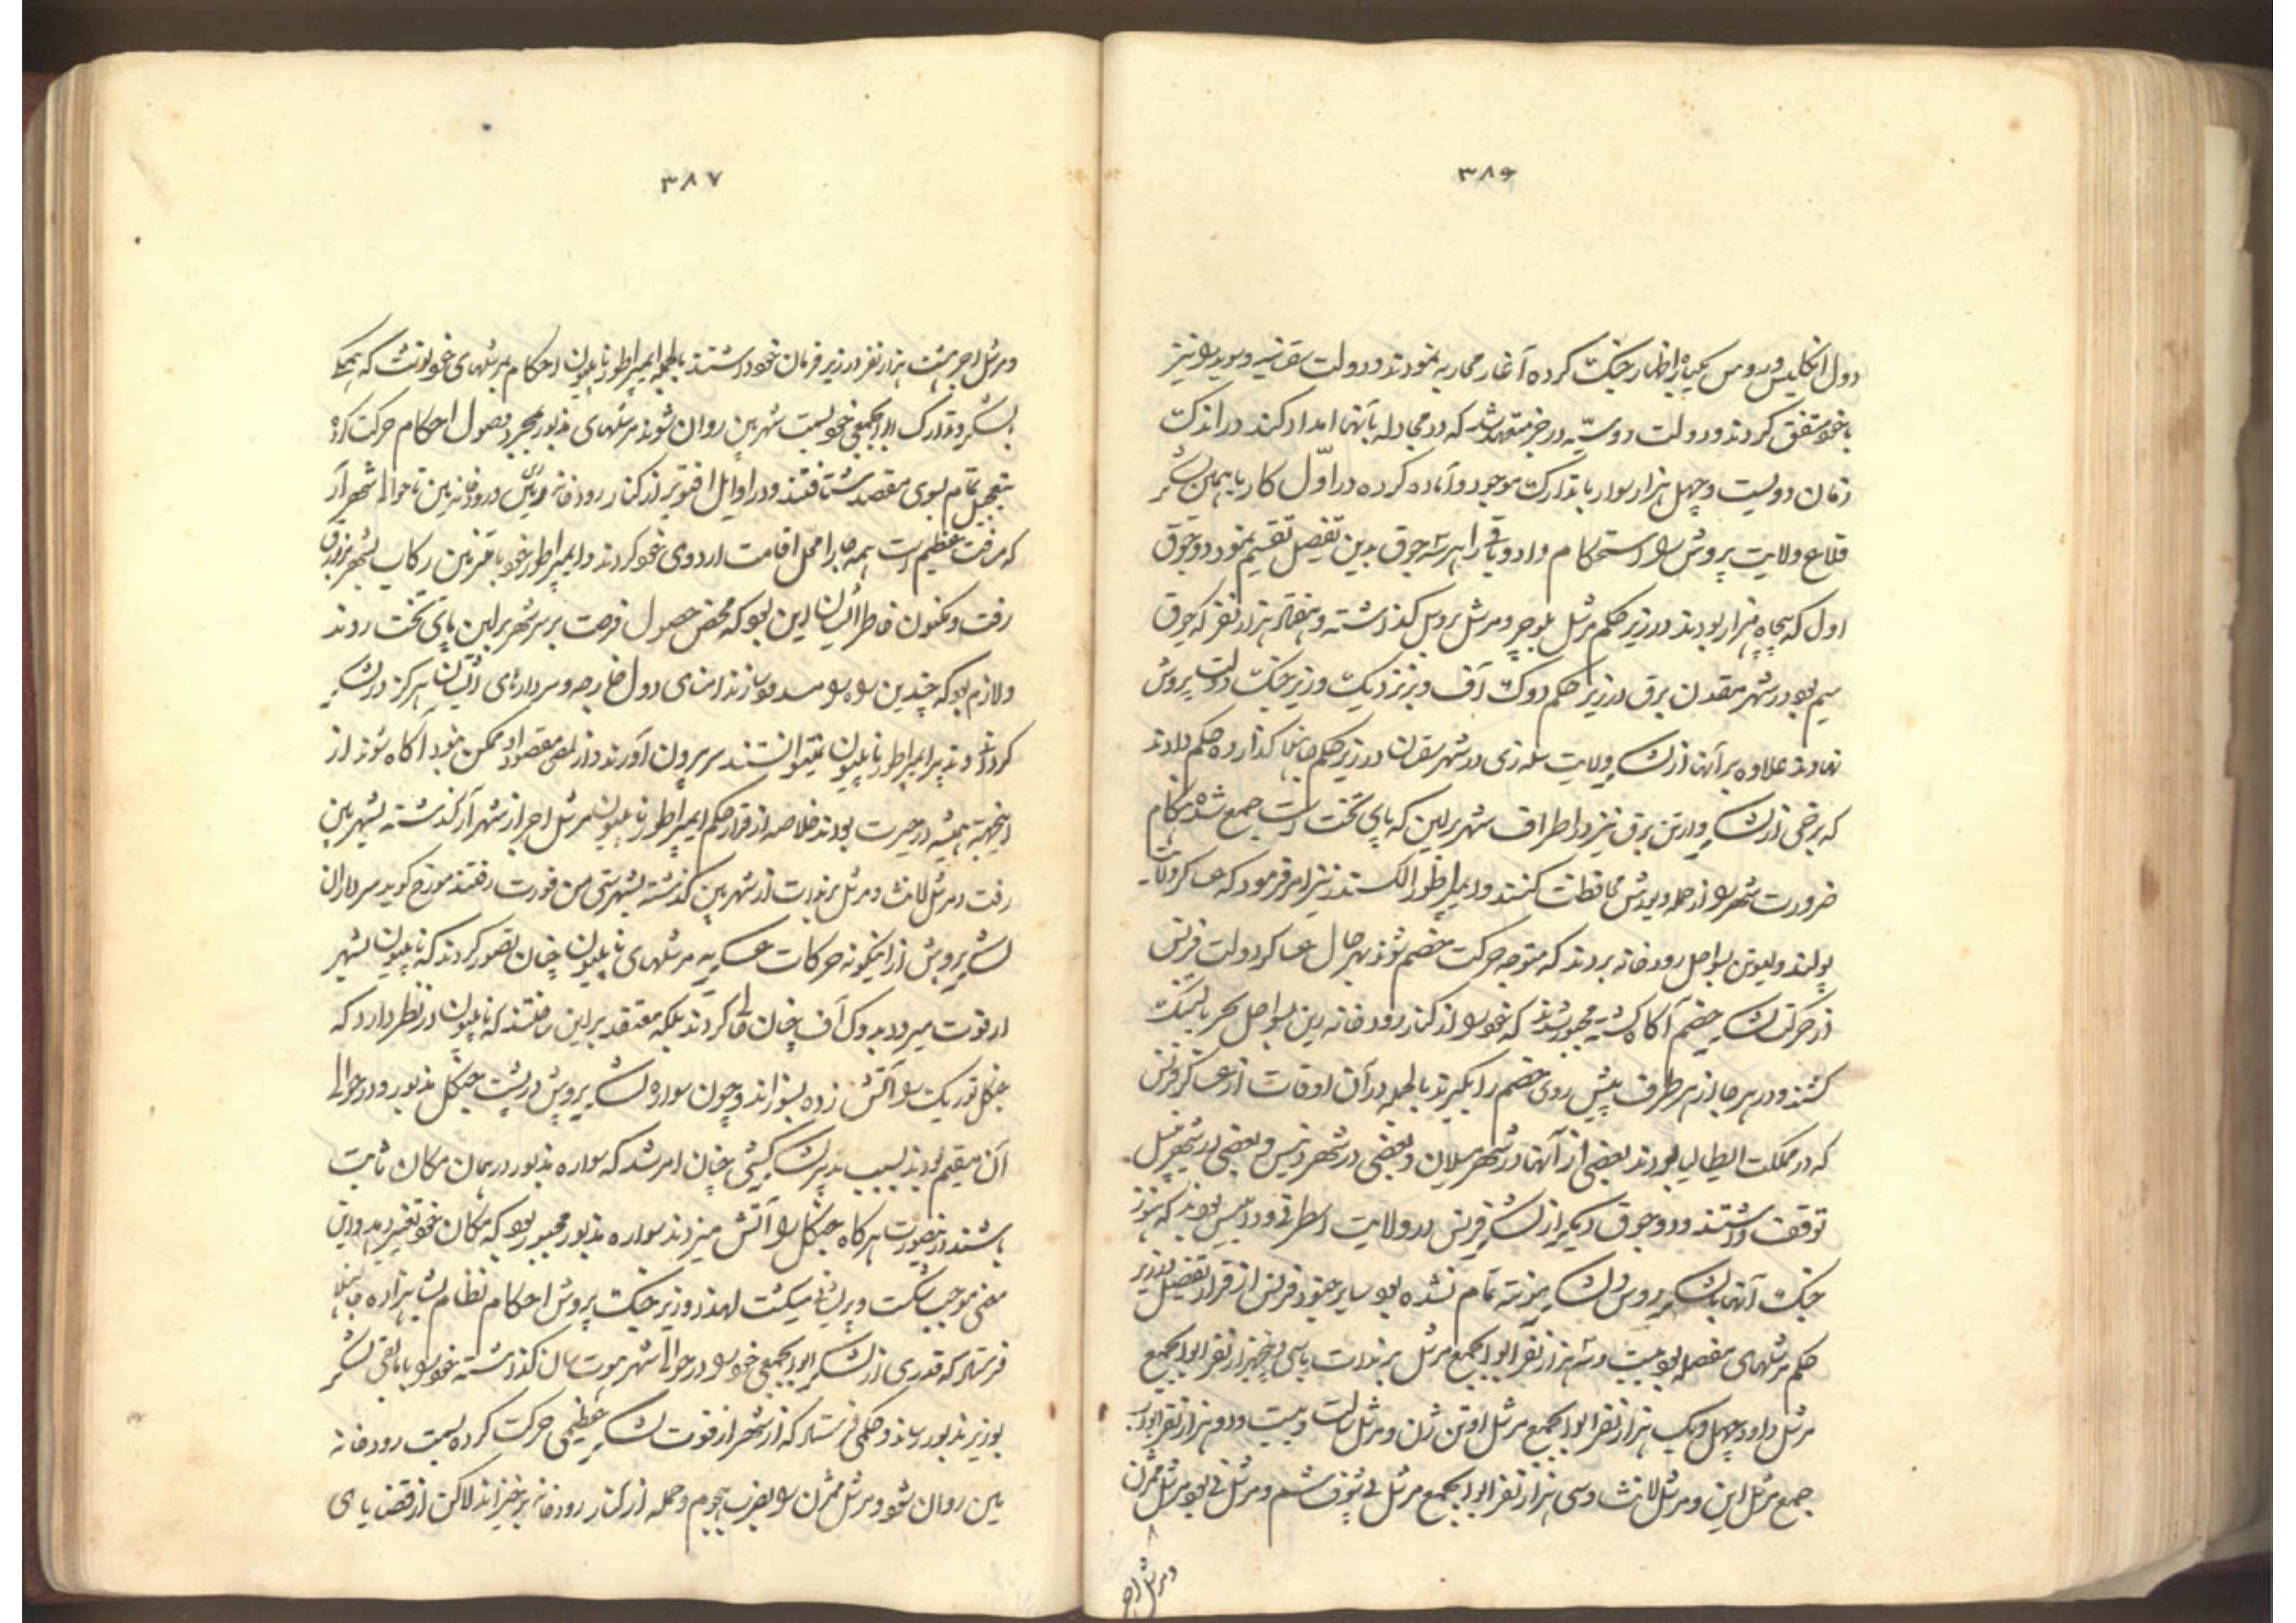 ۳۸۶
دول انگلیس و روس یکباره اظهار جنگ کرده آغاز محاربه نمودند و دولت سقزنیه و سوید را نیز
با خود متفق کردند و دولت روسیه در جز متعهد شد که در مجادله بآنها امداد کند در اندک
زمان دویست و چهل هزار سوار با تدارک موجود و آماده کرده در اول کار با همین لشکر
قلاع ولایت پروش را استحکام داد و باقی را بر سه جوق بدین تفصیل تقسیم نمود دو جوق
اول که پنجاه هزار بودند در زیر حکم مرشل بلوچر و مرشل روبل گذاشته و هفتاد هزار نفر که جوق
سیم بود در شهر مقدن برق در زیر حکم دوک آف و برنزدیک وزیر جنگ دولت پروش
نهادند علاوه بر آنها از لشکر ولایت سله زی در شهر سقان در زیر حکم جانها گذارده حکم دادند
که برخی از لشکر وارتن برق نیز در اطراف شهر برلین که پای تخت است جمع شده هنگام
ضرورت شهر را از حمله و یورش محافظت کنند و ایمپراطور الکسندر نیز امر فرمود که عساکر ولایت
پولند و لیوتن بسواحل رودخانه بردند که متوجه حرکت خصم شوند بهر حال عساکر دولت فرنس
از حرکت لشکر خصم آگاه گشته مجبور شدند که خود را از کنار رودخانه رین بسواحل بحر بالتیک
کشند و در هر جا از هر طرف پیش روی خصم را بگیرند بالجمله در آن اوقات از عساکر فرنس
که در مملکت ایطالیا بودند بعضی از آنها در شهر میلان و بعضی در شهر ونیس و بعضی در شهر نپل
توقف داشتند و دو جوق دیگر از لشکر فرنس در ولایت اسطرق و ودالیس بودند که هنوز
جنگ آنها با لشکر روس و لشکر نمسه تمام نشده بود سایر جنود فرنس از قرار تفصیل در زیر
حکم مرشلهای مفصله بود بیست و سه هزار نفر ابوابجمع مرشل برندات با سی و پنجهزار نفر ابوابجمع
مرشل داود چهل و یک هزار نفر ابوابجمع مرشل اوتن ژن و مرشل سالت و بیست و دو هزار نفر ابواب
جمع مرشل این و مرشل لانث و سی هزار نفر ابوابجمع مرشل فی ثوف شتم و مرشل نی بود مرشل ممرن
و مرشل اجر
۳۸۷
و مرشل اجر هشت هزار نفر در زیر فرمان خود داشتند بالجمله ایمپراطور ناپلیون احکام بمرشلهای خود نوشت که همگی
لشکر و تدارک ابوابجمعی خود بسمت شهر مین روان شوند مرشلهای مذبور بمجرد وصول احکام حرکت کرده
بتعجیل تمام بسوی مقصد شتافتند و در اوایل اقتوبر از کنار رودخانه رین و رودخانه مین تا حوالی شهر آر
که مسافت عظیم است همه جا را محل اقامت اردوی خود کردند و ایمپراطور خود با ملتزمین رکاب بشهر برزبرق
رفت و مکنون خاطر ایشان این بود که محض حصول فرصت بر سر شهر برلین پای تخت روند
و لازم بود که چندین راه را مسدود سازند امنای دول خارجه و سردارهای ایشان هرگز در لشکر
کردن و تدبیر ایمپراطور ناپلیون نمیتوانستند سر بیرون آورند و از اصل مقصود او ممکن نبود آگاه شوند از
اینجهة همیشه در حیرت بودند خلاصه از قرار حکم ایمپراطور ناپلیون مرشل اجر از شهر آر گذشته بشهر مین
رفت و مرشل لانث و مرشل برندات از شهر مین گذشته بشهر ستی من فورت رفتند مورخ گوید سرداران
لشکر پروش از اینگونه حرکات عسکریه مرشلهای ناپلیون چنان تصور کردند که ناپلیون بشهر
ارفوت میرود بدوک آف چنان القا کردند بلکه معتقد بر این رفتند که ناپلیون در نظر دارد که
جنگل توریک را آتش زده بسوزاند و چون سواره لشکر پروش در پشت جنگل مذبور و در حوالی
آن مقیم بودند بسبب تدبیر لشکرکشی چنان امر شد که سواره مذبور در همان مکان ثابت
باشند در اینصورت هرگاه جنگل را آتش میزدند سواره مذبور مجبور بود که مکان خود تغییر دهد و این
معنی موجب شکست و پریشانی میگشت لهذا وزیر جنگ پروش احکام نظام بشاهزاده جانها
فرستاد که قدری از لشکر ابوابجمعی خود را در حوالی شهر موت سان گذاشته خود را با مابقی لشکر
بوزیر مذبور رساند و حکمی فرستاد که از شهر ارفوت لشکر عظیمی حرکت کرده بسمت رودخانه
مین روان شود و مرشل ممرن را بضرب هجوم و حمله از کنار رودخانه برخیزاند لاکن از قضایای